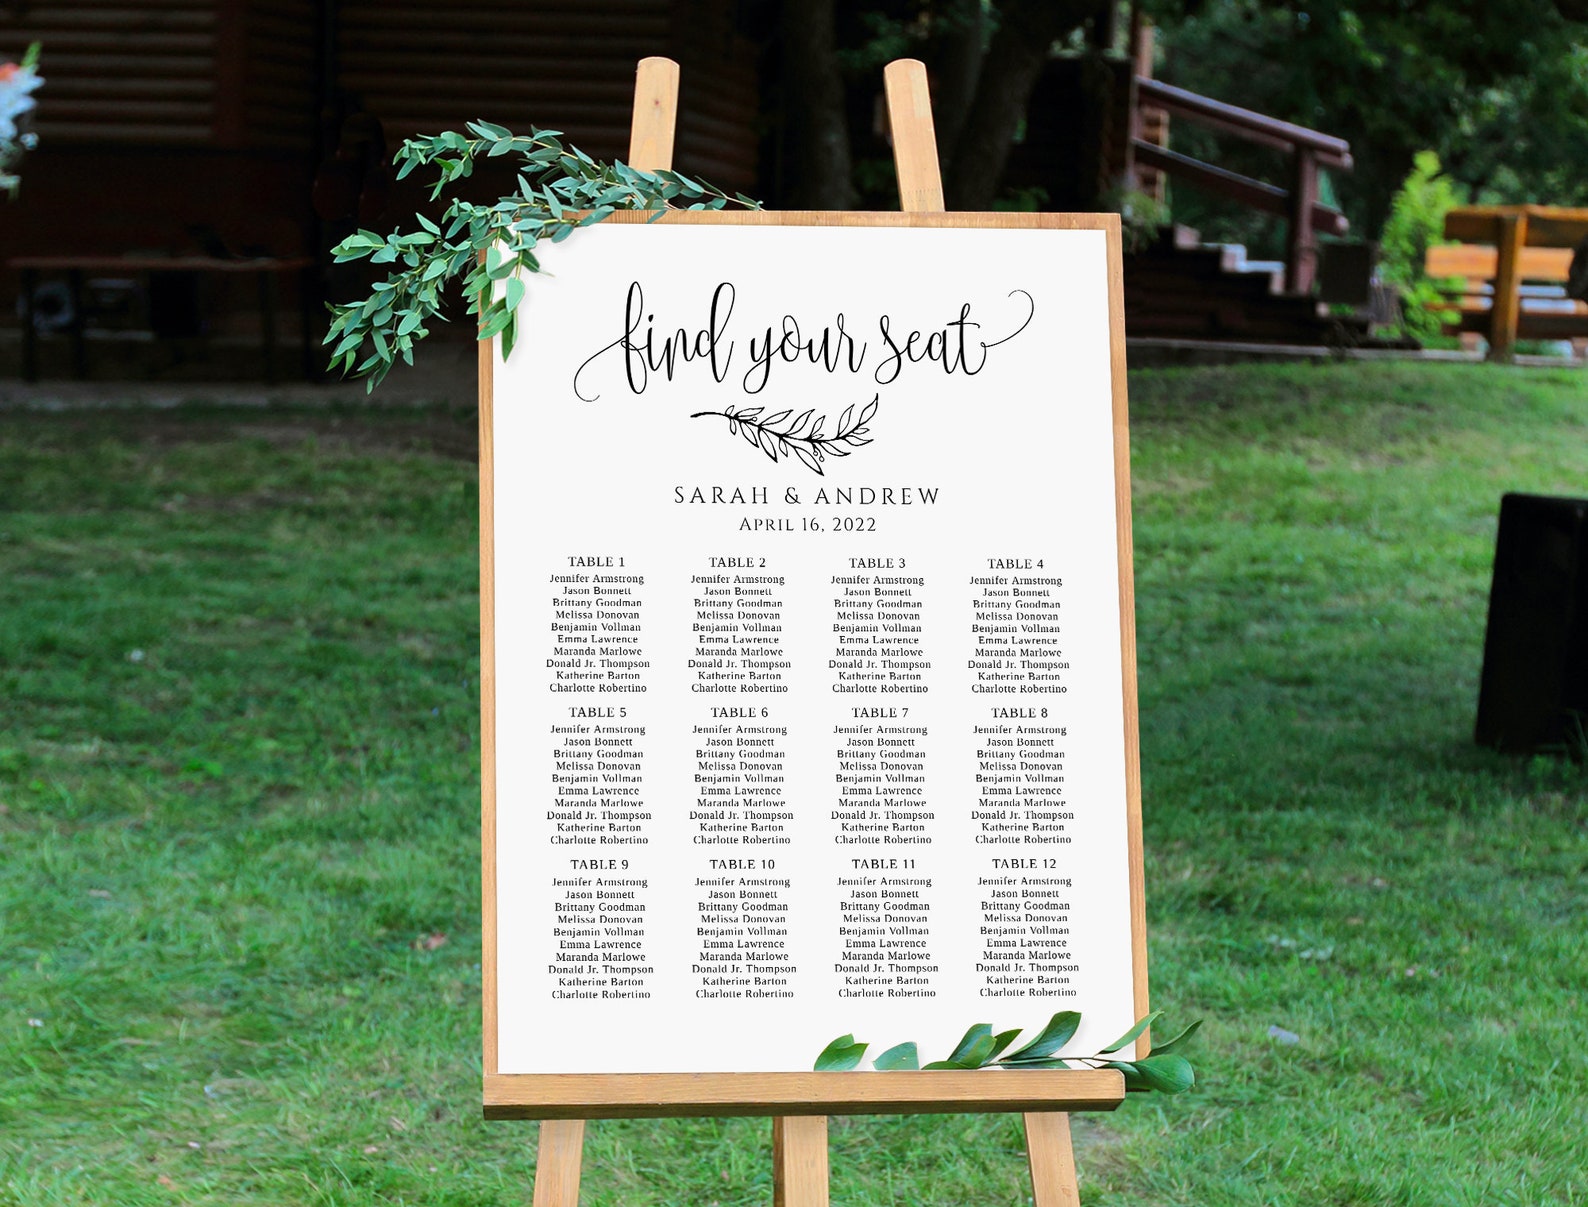 find your seat
SARAH & ANDREW
APRIL 16, 2022
TABLE 1
Jennifer Armstrong
Jason Bonnett
Brittany Goodman
Melissa Donovan
Benjamin Vollman
Emma Lawrence
Maranda Marlowe
Donald Jr. Thompson
Katherine Barton
Charlotte Robertino
TABLE 2
Jennifer Armstrong
Jason Bonnett
Brittany Goodman
Melissa Donovan
Benjamin Vollman
Emma Lawrence
Maranda Marlowe
Donald Jr. Thompson
Katherine Barton
Charlotte Robertino
TABLE 3
Jennifer Armstrong
Jason Bonnett
Brittany Goodman
Melissa Donovan
Benjamin Vollman
Emma Lawrence
Maranda Marlowe
Donald Jr. Thompson
Katherine Barton
Charlotte Robertino
TABLE 4
Jennifer Armstrong
Jason Bonnett
Brittany Goodman
Melissa Donovan
Benjamin Vollman
Emma Lawrence
Maranda Marlowe
Donald Jr. Thompson
Katherine Barton
Charlotte Robertino
TABLE 5
Jennifer Armstrong
Jason Bonnett
Brittany Goodman
Melissa Donovan
Benjamin Vollman
Emma Lawrence
Maranda Marlowe
Donald Jr. Thompson
Katherine Barton
Charlotte Robertino
TABLE 6
Jennifer Armstrong
Jason Bonnett
Brittany Goodman
Melissa Donovan
Benjamin Vollman
Emma Lawrence
Maranda Marlowe
Donald Jr. Thompson
Katherine Barton
Charlotte Robertino
TABLE 7
Jennifer Armstrong
Jason Bonnett
Brittany Goodman
Melissa Donovan
Benjamin Vollman
Emma Lawrence
Maranda Marlowe
Donald Jr. Thompson
Katherine Barton
Charlotte Robertino
TABLE 8
Jennifer Armstrong
Jason Bonnett
Brittany Goodman
Melissa Donovan
Benjamin Vollman
Emma Lawrence
Maranda Marlowe
Donald Jr. Thompson
Katherine Barton
Charlotte Robertino
TABLE 9
Jennifer Armstrong
Jason Bonnett
Brittany Goodman
Melissa Donovan
Benjamin Vollman
Emma Lawrence
Maranda Marlowe
Donald Jr. Thompson
Katherine Barton
Charlotte Robertino
TABLE 10
Jennifer Armstrong
Jason Bonnett
Brittany Goodman
Melissa Donovan
Benjamin Vollman
Emma Lawrence
Maranda Marlowe
Donald Jr. Thompson
Katherine Barton
Charlotte Robertino
TABLE 11
Jennifer Armstrong
Jason Bonnett
Brittany Goodman
Melissa Donovan
Benjamin Vollman
Emma Lawrence
Maranda Marlowe
Donald Jr. Thompson
Katherine Barton
Charlotte Robertino
TABLE 12
Jennifer Armstrong
Jason Bonnett
Brittany Goodman
Melissa Donovan
Benjamin Vollman
Emma Lawrence
Maranda Marlowe
Donald Jr. Thompson
Katherine Barton
Charlotte Robertino